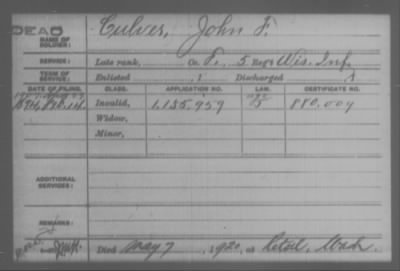 DEAD
NAME OF SOLDIER: Culver, John F.
SERVICE: Late rank, Co. F., 5 Reg't Wis. Inf.
TERM OF SERVICE: Enlisted , 1 Discharged , 1
DATE OF FILING. CLASS. APPLICATION NO. LAW. CERTIFICATE NO.
Invalid, 1,155,959 880,009
Widow,
Minor,
ADDITIONAL SERVICES:
REMARKS:
Died May 7, 1920, at Wash.